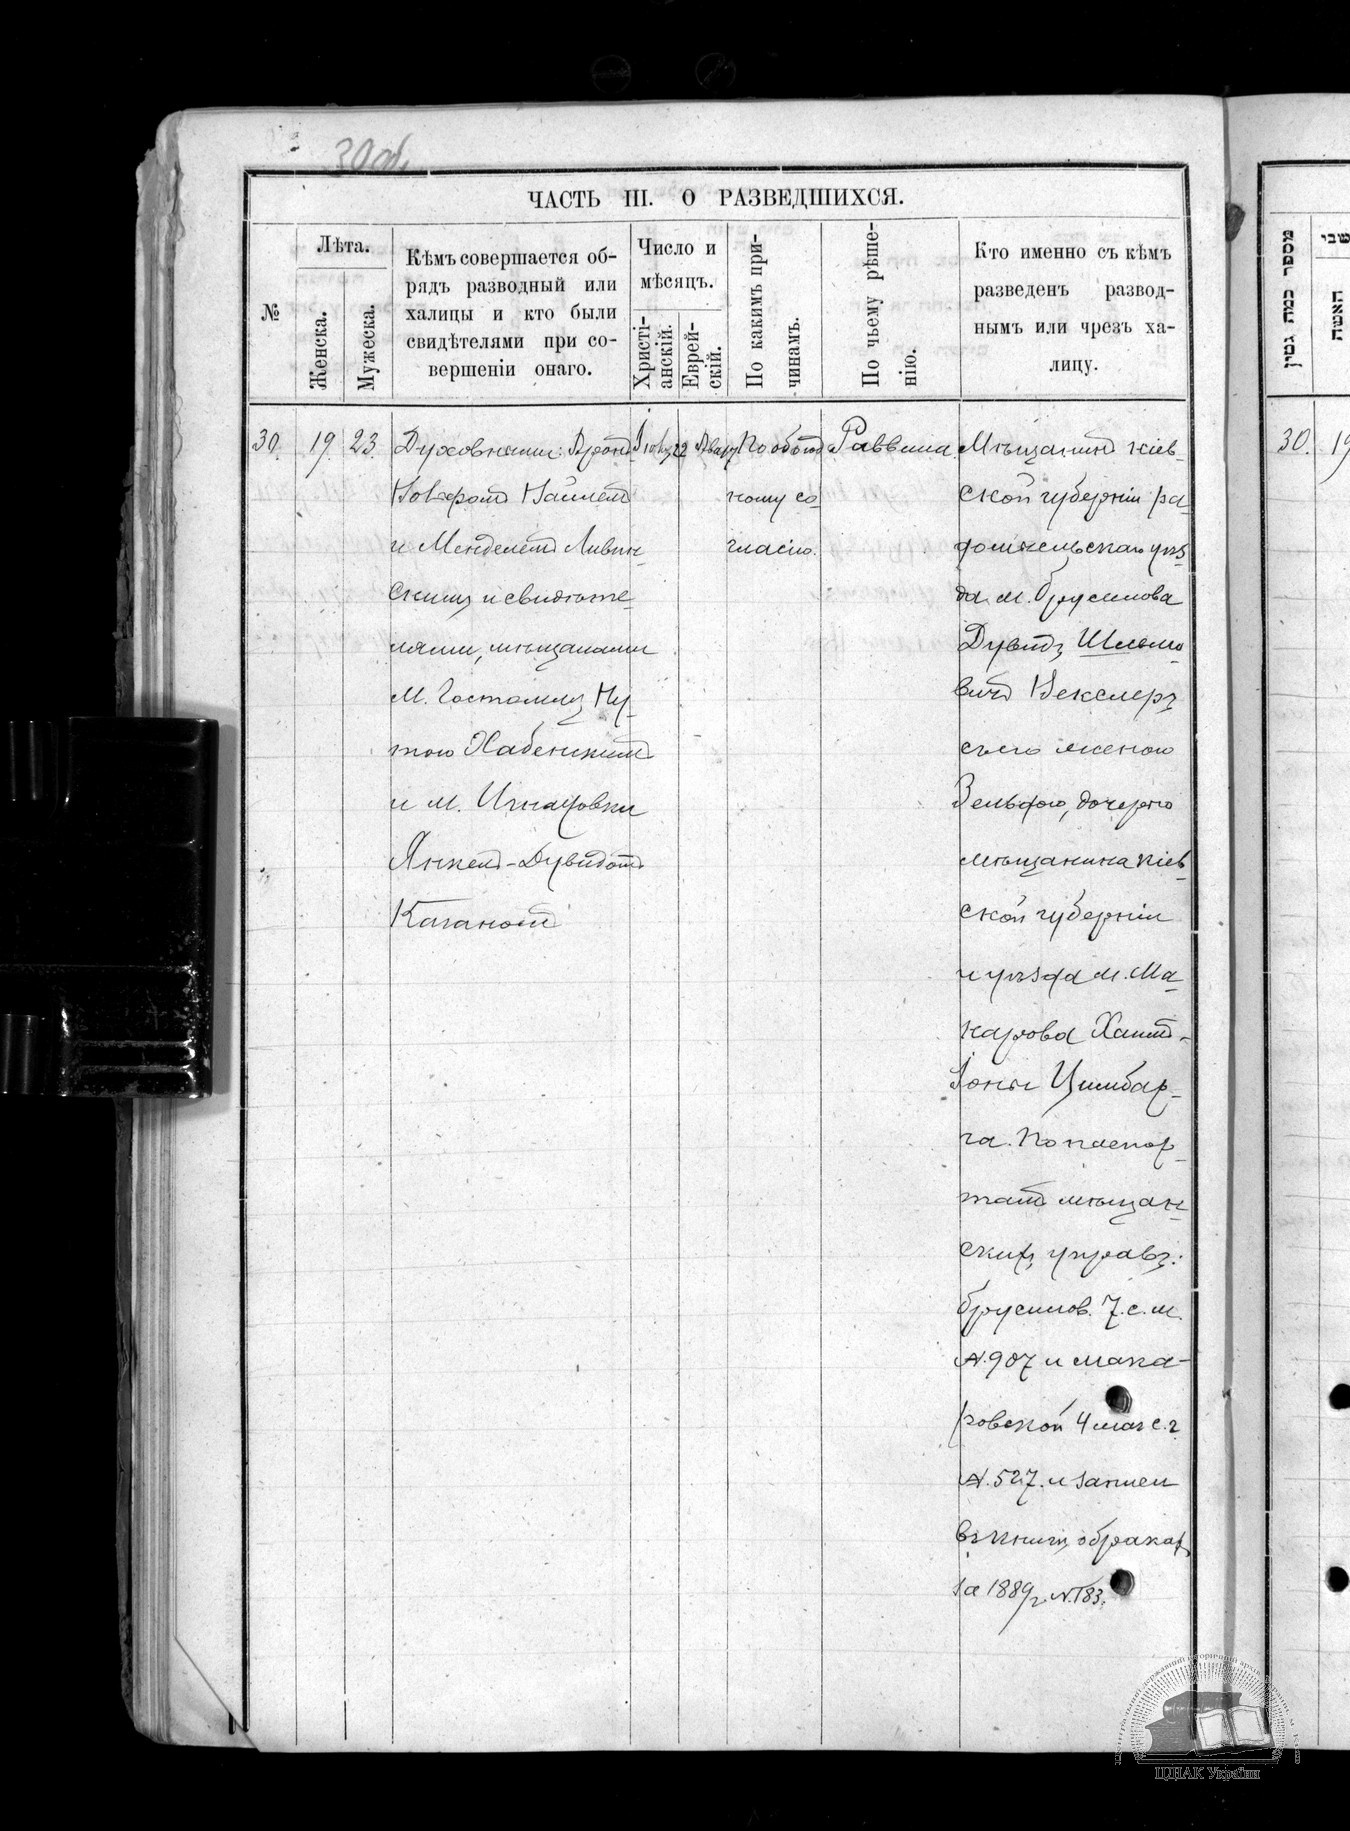 30 об.
ЧАСТЬ III. О РАЗВЕДШИХСЯ.
№
Лѣта.
Женска.
Мужеска.
Кѣмъ совершается об-
рядъ разводный или
халицы и кто были
свидѣтелями при со-
вершеніи онаго.
Число и
мѣсяцъ.
Христі-
анскій.
Еврей-
скій.
По какимъ при-
чинамъ.
По чьему рѣше-
нію.
Кто именно съ кѣмъ
разведенъ развод-
нымъ или чрезъ ха-
лицу.
30.
19.
23.
Духовными:
и Менделемъ Ливин-
скимъ и свидѣте-
лями, мѣщанами
м. Гостомля Ну-
тою Хабенскимъ
и м. Игнатовки
Янкель-Дувидомъ
Каганомъ
22
По обоюд
ному со
гласію.
Раввина.
Мѣщанинъ кіев-
ской губерніи ра-
домысльскаго уѣз
да м. Брусилова
Дувидъ Шлемо-
вичъ Векслеръ
съ его женою
Зельдою, дочерью
мѣщанина кіев-
ской губерніи
и уѣзда м. Ма-
карова Хаимъ-
Іоны Цимбар-
га. По паспор-
тамъ мѣщан-
скихъ управъ:
брусилов. 7. с. м.
№. 907 и мака-
ровской 4 мая с. г.
№. 527. и записи
въ книгѣ о бракахъ
за 1889 г. № 183.
מספר כמה גטין
האשה
30.
19
ЦДІАК України